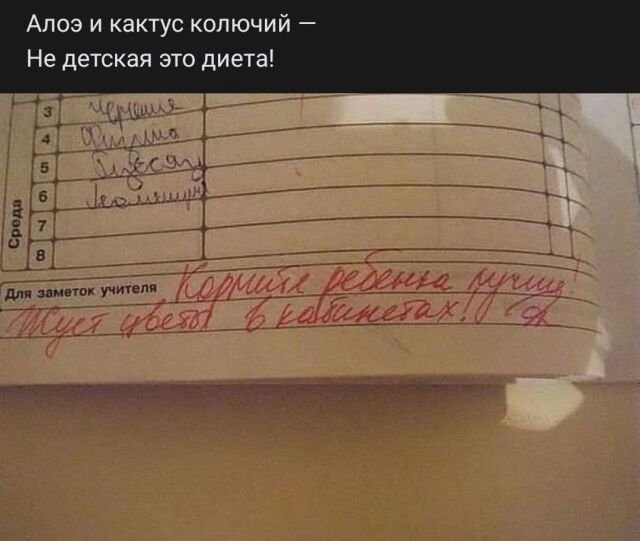 Алоэ и кактус колючий —
Не детская это диета!
3 Черчение
4 Физика
5
6 Геометрия
7
Среда
8
Для заметок учителя Кормите ребенка лучше
Жует цветы в кабинетах!